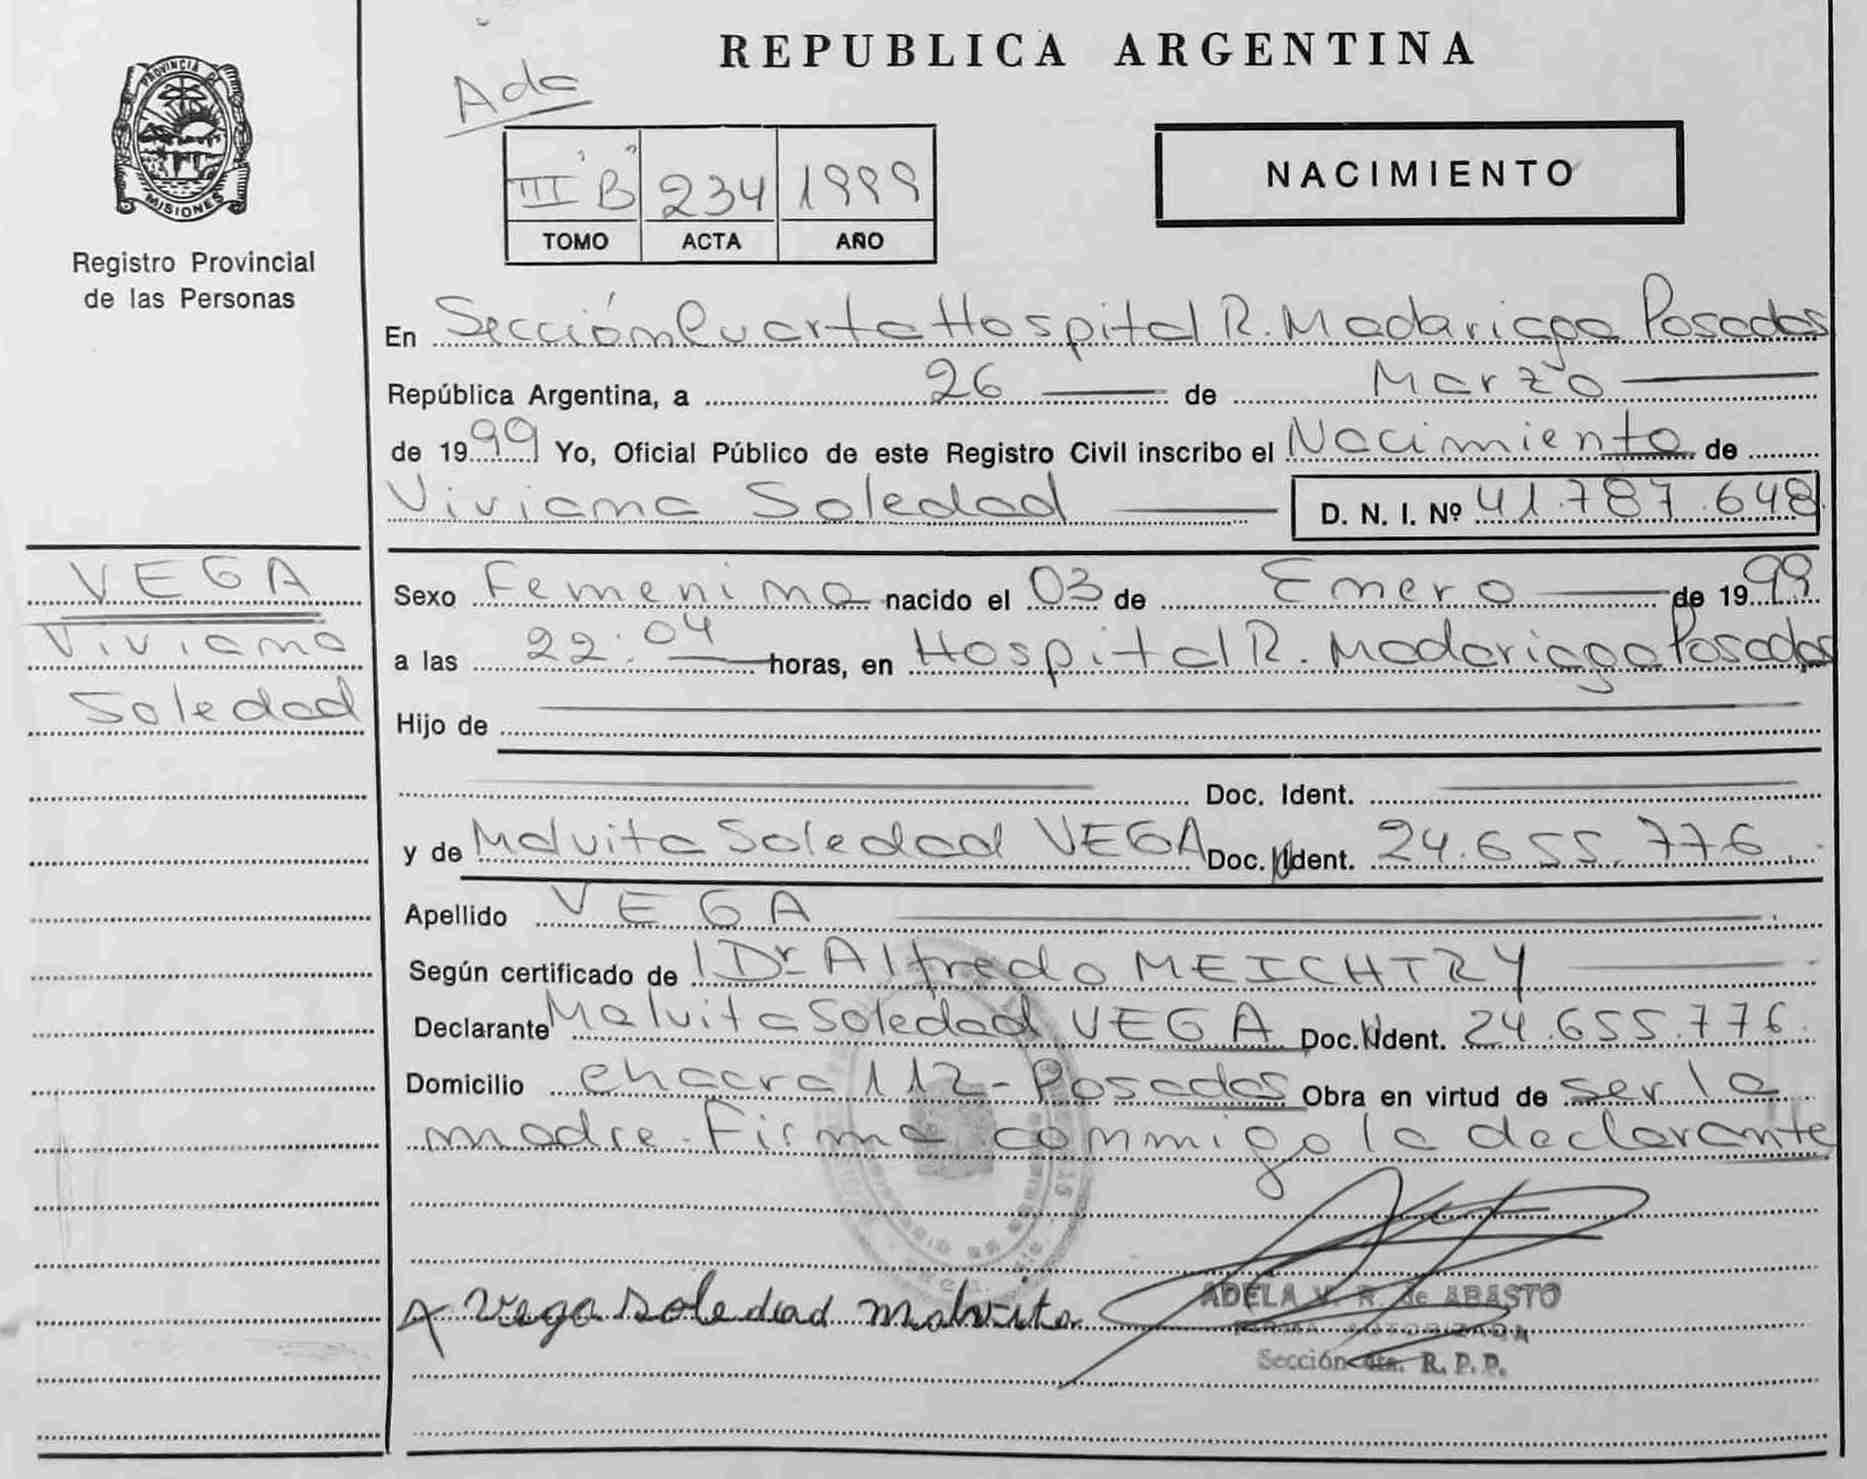 REPUBLICA ARGENTINA
Ada
PROVINCIA DE
MISIONES
Registro Provincial
de las Personas
III "B" 234 1999
TOMO ACTA AÑO
NACIMIENTO
En Sección Cuarta Hospital R. Madariaga Posadas
República Argentina, a 26 de Marzo
de 1999 Yo, Oficial Público de este Registro Civil inscribo el Nacimiento de
Viviana Soledad D. N. I. Nº 41.787.648
VEGA
Viviana
Soledad
Sexo Femenino nacido el 03 de Enero de 1999
a las 22:04 horas, en Hospital R. Madariaga Posadas
Hijo de
Doc. Ident.
y de Malvita Soledad VEGA Doc. Ident. 24.655.776
Apellido VEGA
Según certificado de Dr Alfredo MEICHTRY
Declarante Malvita Soledad VEGA Doc. Ident. 24.655.776
Domicilio Chacra 112 - Posadas Obra en virtud de ser la
madre. Firma conmigo la declarante
Vega Soledad Malvita
ADELA V. R. de ABASTO
FIRMA AUTORIZADA
Sección 4ta. R. P. P.